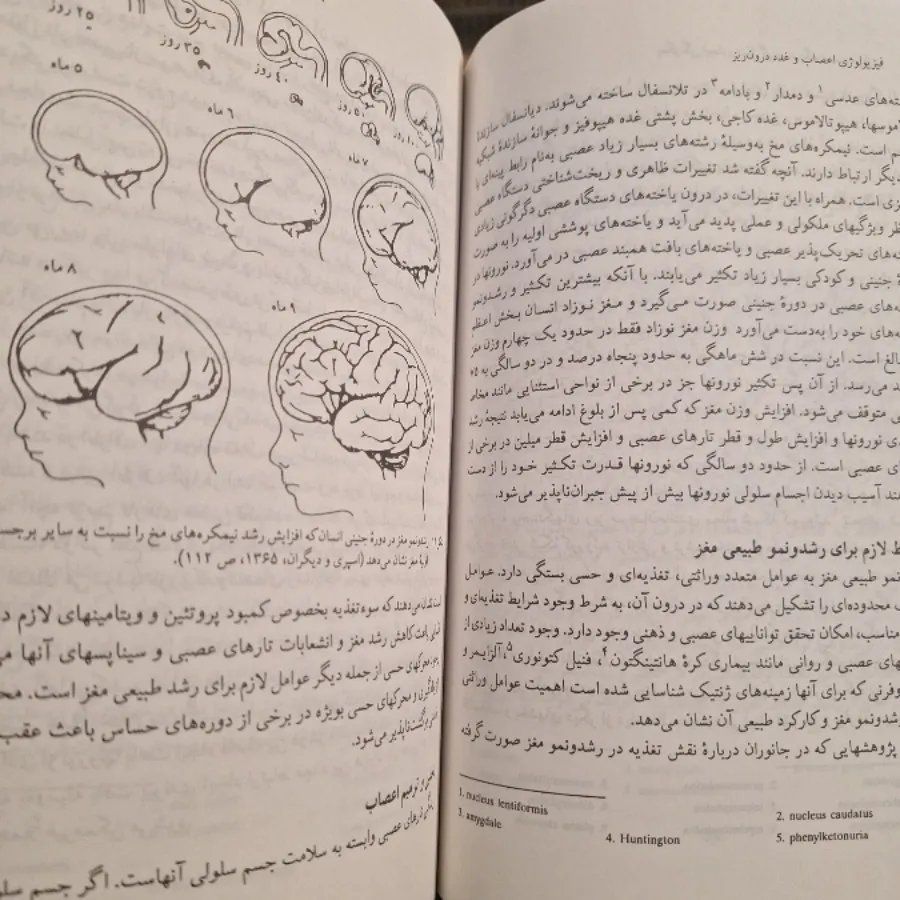 فیزیولوژی اعصاب و غدد درون‌ریز
ته‌های عدسی ۱ و دمدار ۲ و بادامه ۳ در تلانسفال ساخته می‌شوند. دیانسفال سازندهٔ
لاموسها، هیپوتالاموس، غده کاجی، بخش پشتی غده هیپوفیز و جوانهٔ سازندهٔ شبکیه
م است. نیمکره‌های مخ به‌وسیلهٔ رشته‌های بسیار زیاد عصبی به‌نام رابط پینه‌ای با
دیگر ارتباط دارند. آنچه گفته شد تغییرات ظاهری و ریخت‌شناختی دستگاه عصبی
زی است. همراه با این تغییرات، در درون یاخته‌های دستگاه عصبی دگرگونی زیادی
ظر ویژگیهای ملکولی و عملی پدید می‌آید و یاخته‌های پوششی اولیه را به صورت
ته‌های تحریک‌پذیر عصبی و یاخته‌های بافت همبند عصبی در می‌آورد. نورونها در
هٔ جنینی و کودکی بسیار زیاد تکثیر می‌یابند. با آنکه بیشترین تکثیر و رشدونمو
ته‌های عصبی در دورهٔ جنینی صورت می‌گیرد و مغز نوزاد انسان بخش اعظم
ه‌های خود را به‌دست می‌آورد وزن مغز نوزاد فقط در حدود یک چهارم وزن مغز
الغ است. این نسبت در شش ماهگی به حدود پنجاه درصد و در دو سالگی به ۷۵
د می‌رسد. از آن پس تکثیر نورونها جز در برخی از نواحی استثنایی مانند مخاط
ی متوقف می‌شود. افزایش وزن مغز که کمی پس از بلوغ ادامه می‌یابد نتیجهٔ رشد
دی نورونها و افزایش طول و قطر تارهای عصبی و افزایش قطر میلین در برخی از
ای عصبی است. از حدود دو سالگی که نورونها قدرت تکثیر خود را از دست
هند آسیب دیدن اجسام سلولی نورونها بیش از پیش جبران‌ناپذیر می‌شود.
ط لازم برای رشدونمو طبیعی مغز
نمو طبیعی مغز به عوامل متعدد وراثتی، تغذیه‌ای و حسی بستگی دارد. عوامل
محدوده‌ای را تشکیل می‌دهند که در درون آن، به شرط وجود شرایط تغذیه‌ای و
مناسب، امکان تحقق تواناییهای عصبی و ذهنی وجود دارد. وجود تعداد زیادی از
یهای عصبی و روانی مانند بیماری کرهٔ هانتینگتون ۴، فنیل کتونوری ۵، آلزایمر و
وفرنی که برای آنها زمینه‌های ژنتیک شناسایی شده است اهمیت عوامل وراثتی
رشدونمو مغز و کارکرد طبیعی آن نشان می‌دهد.
پژوهشهایی که در جانوران دربارهٔ نقش تغذیه در رشدونمو مغز صورت گرفته
1. nucleus lentiformis
2. nucleus caudatus
3. amygdale
4. Huntington
5. phenylketonuria
۲۵ روز
۳۵ روز
۴۰ روز
۵۰ روز
۵ ماه
۶ ماه
۷ ماه
۸ ماه
۹ ماه
رشدونمو مغز در دورهٔ جنینی انسان که افزایش رشد نیمکره‌های مخ را نسبت به سایر برجست
اولیهٔ مغز نشان می‌دهد (اسپری و دیگران، ۱۳۶۵، ص ۱۱۲).
است نشان می‌دهند که سوءتغذیه بخصوص کمبود پروتئین و ویتامینهای لازم د
باعث کاهش رشد مغز و انشعابات تارهای عصبی و سیناپسهای آنها می
محرکهای حسی از جمله دیگر عوامل لازم برای رشد طبیعی مغز است. مح
و محرکهای حسی بویژه در برخی از دوره‌های حساس باعث عقب
برگشت‌ناپذیر می‌شود.
و ترمیم اعصاب
تارهای عصبی وابسته به سلامت جسم سلولی آنهاست. اگر جسم سلو